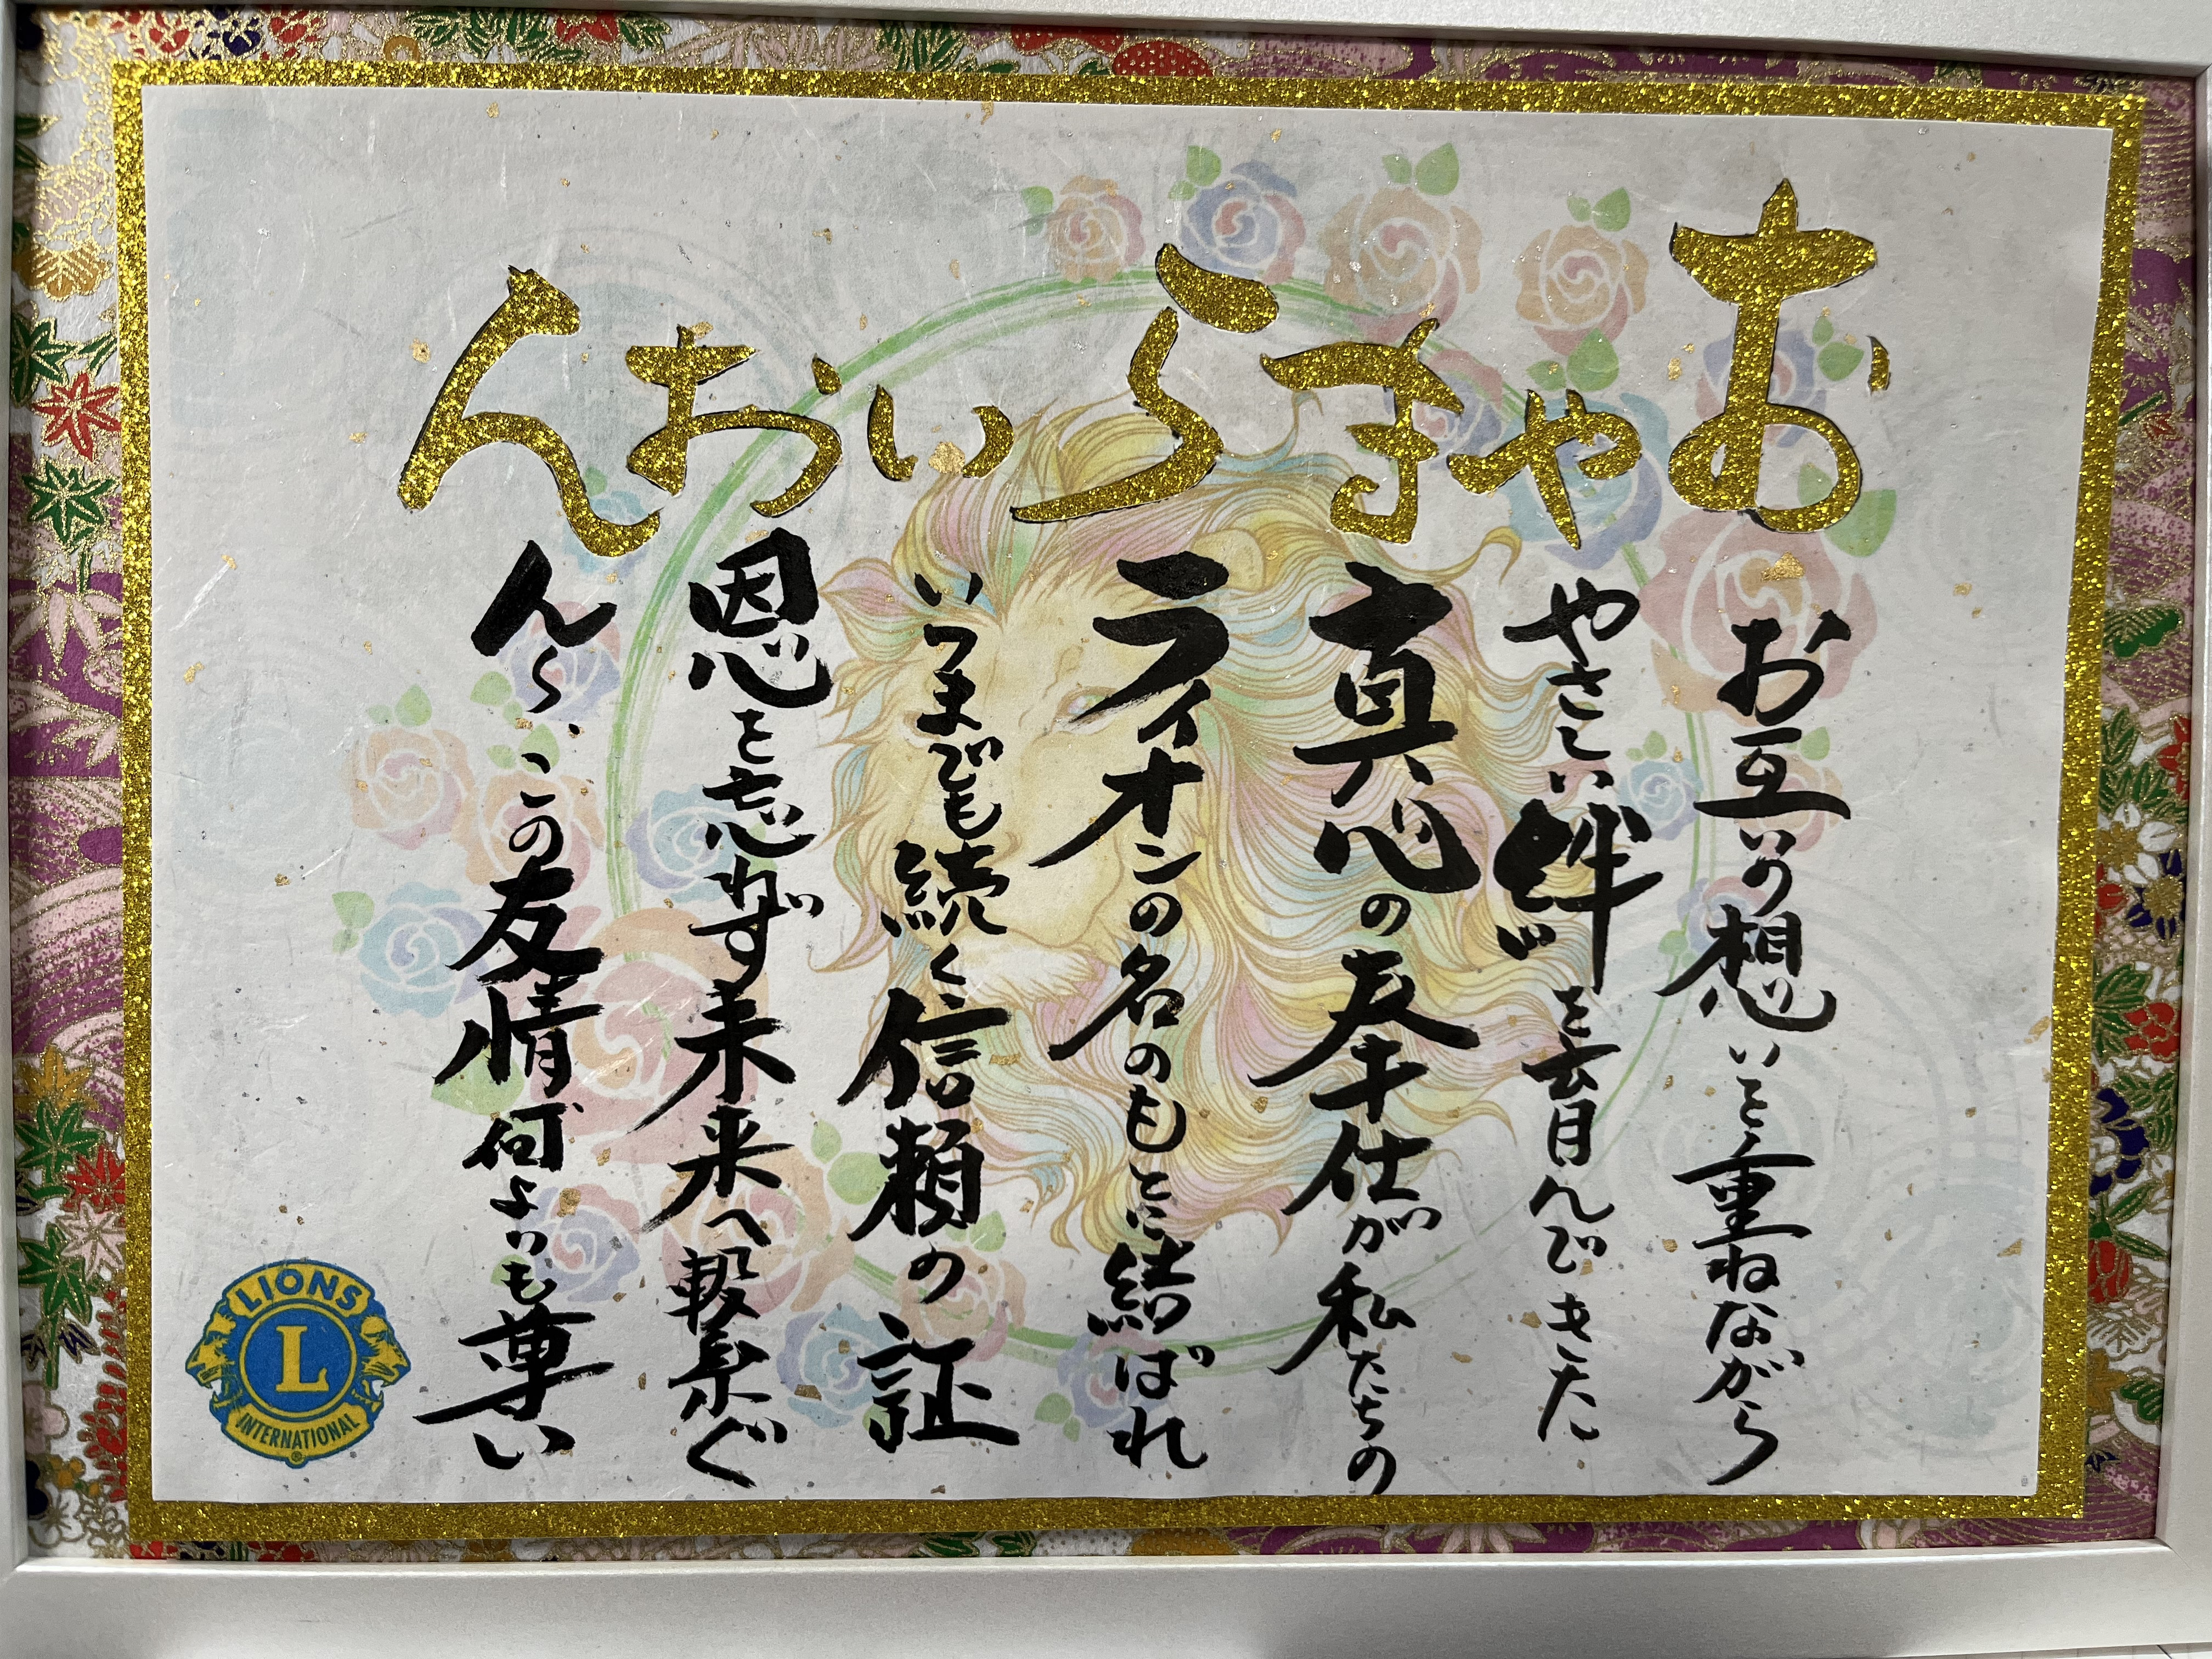 おやまらいおん
お互いの想いを重ねながら
やさしい絆を育んできた
真心の奉仕が私たちの
ライオンの名のもとに結ばれ
いつまでも続く信頼の証
恩を忘れず未来へ繋ぐ
ん〜、この友情何よりも尊い
LIONS
L
INTERNATIONAL
®